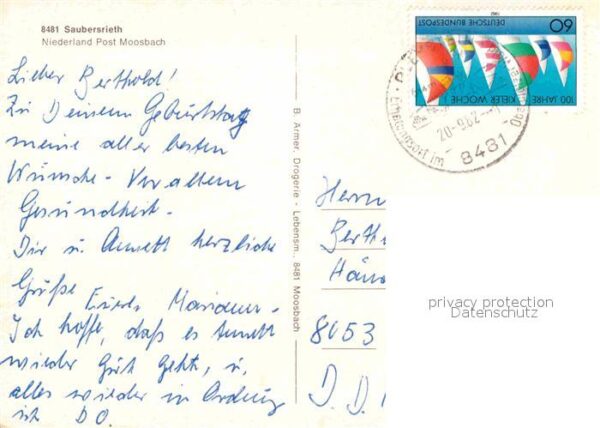 8481 Saubersrieth
Niederland Post Moosbach
Lieber Berthold!
Zu Deinem Geburtstag
meine aller besten
Wünsche - Vor allem
Gesundheit.
Dir u. Annett herzliche
Grüße
Ich hoffe, daß es Annett
wieder Gut geht, u.
alles wieder in Ordnung
ist DO.
B. Armer, Drogerie - Lebensm., 8481 Moosbach
1982
DEUTSCHE BUNDESPOST
60
100 JAHRE KIELER WOCHE
20-9.82
8481
Herrn
Berth
Hän
8053
D. D.
privacy protection
Datenschutz